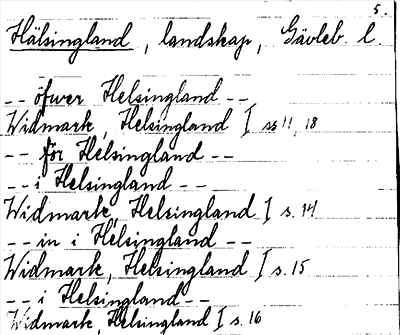 5.
Hälsingland, landskap, Gävleb. l.
-- öfwer Helsingland --
Widmark, Helsingland I ss 11, 18
-- för Helsingland --
-- i Helsingland --
Widmark, Helsingland I s. 14
-- in i Helsingland --
Widmark, Helsingland I s. 15
-- i Helsingland --
Widmark, Helsingland I s. 16